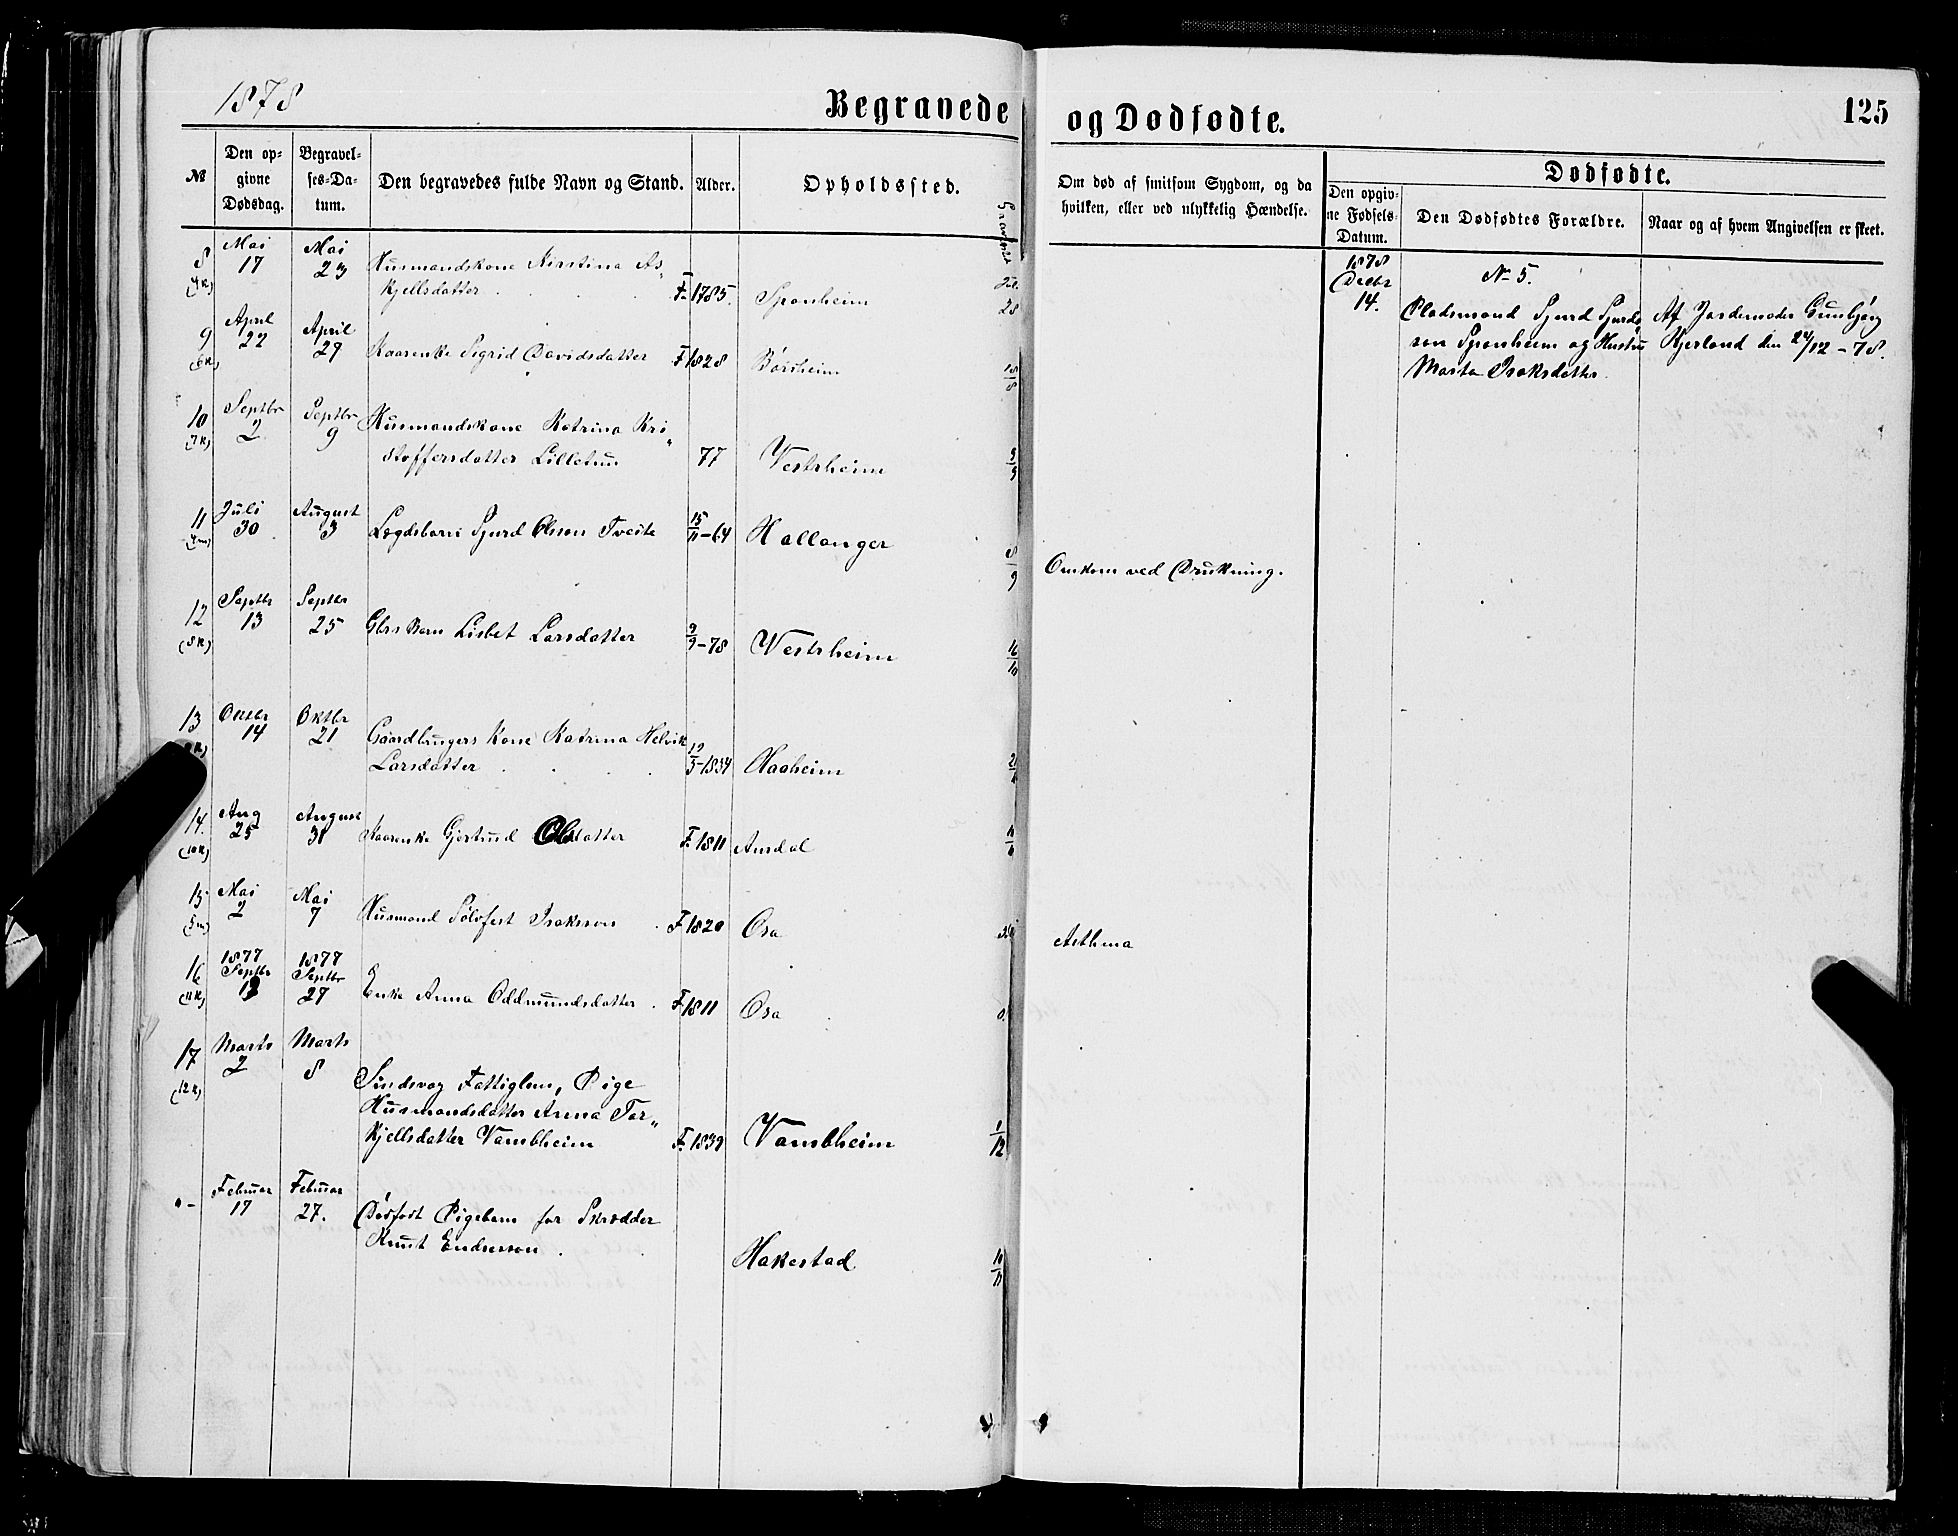 1878
Begravede og Dødfødte.
125
№
Den opgivne Dødsdag.
Begravelses-Datum.
Den begravedes fulde Navn og Stand.
Alder.
Opholdssted.
Om død af smitsom Sygdom, og da hvilken, eller ved ulykkelig Hændelse.
Dødfødte.
Den opgivne Fødsels-Datum.
Den Dødfødtes Forældre.
Naar og af hvem Angivelsen er skeet.
8 Mai 17 Mai 23 Husmandskone Kirstina As„
(4K) kjellsdatter F. 1785. Sponheim
9 April 22 April 29 Kaarenke Sigrid Davidsdatter F 1828
(6K)
10 Septbr 2 Septbr 9 Husmandskone Katrina Kri„
(7K) stoffersdatter Lilletun 77 Vestrheim 9/9
11 Juli 30 August 3 Lægdsbarn Sjurd Olson Tveite 15/11-64 Hallanger 8/9
Omkom ved Drukning.
12 Septbr 13 Septbr 25 Gbrs Barn Lisbet Larsdatter 9/9-78 Vestrheim 16/10
(8K)
13 Oktbr 14 Oktbr 21 Gaardbrugers Kone Katrina Helvik
Larsdatter -1834 Haaheim
14. Aug 25 August 31 Kaarenke Gjertrud Olsdatter F. 1811
(10K)
15 Mai 2 Mai 7 Husmand Sølvfest Isaksson F 1820 Osa
(5m)
Asthma
16 1877 Septbr 1877 Septbr 27 Enke Anna Oddmundsdatter F 1811 Osa
(11K)
17 Marts 2 Marts 8 Sindsvag Fattiglem, Pige
(12K) Husmandsdatter Anna Tor„
kjellsdatter Vambheim F. 1839 Vambheim 1/12
„- Februar 17 Februar 27. Dødfødt Pigebarn for Skrædder
Knut Endresson Hakestad 10/11
1878 Decbr 14.
№ 5.
Pladsmand Sjurd Sjurds
son Sponheim og Hustru
Marta Isaksdatter
Af Jordemoder Gunbjørg
Kjerland den 24/12-78.